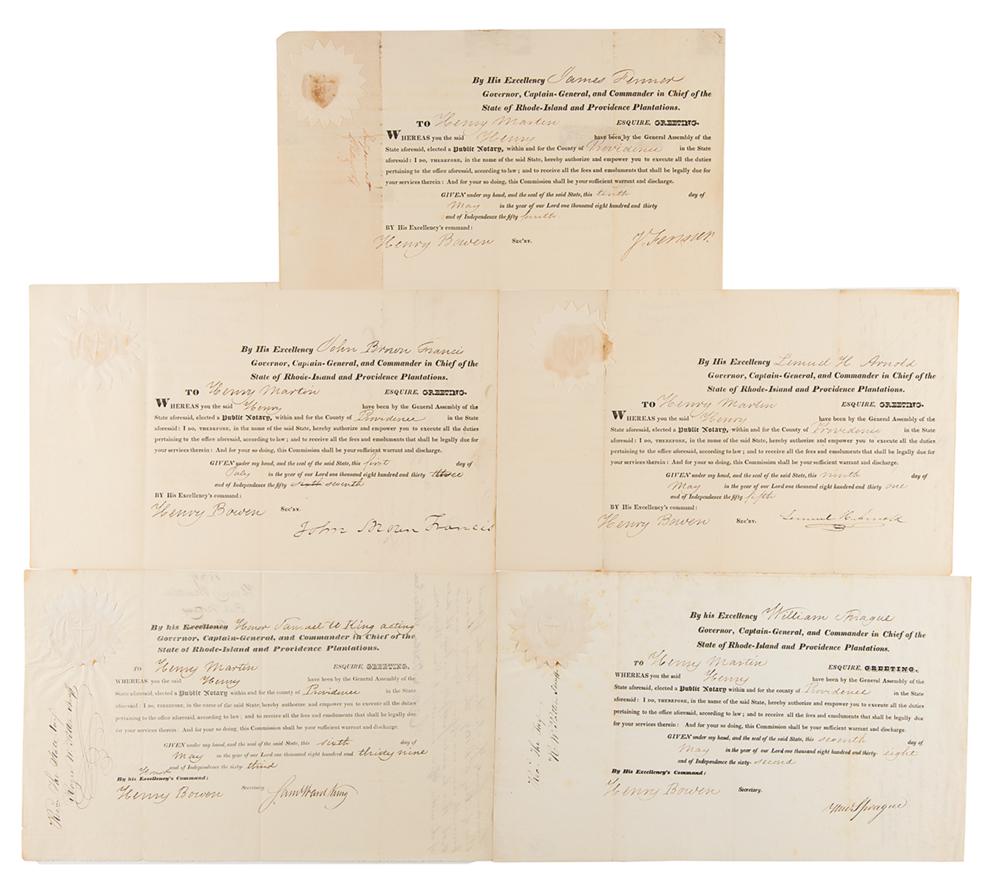 By His Excellency James Fenner
Governor, Captain-General, and Commander in Chief of the
State of Rhode-Island and Providence Plantations.
TO Henry Martin ESQUIRE, GREETING.
WHEREAS you the said Henry have been by the General Assembly of the
State aforesaid, elected a Public Notary, within and for the County of Providence in the State
aforesaid: I DO, THEREFORE, in the name of the said State, hereby authorize and empower you to execute all the duties
pertaining to the office aforesaid, according to law; and to receive all the fees and emoluments that shall be legally due for
your services therein: And for your so doing, this Commission shall be your sufficient warrant and discharge.
GIVEN under my hand, and the seal of the said State, this tenth day of
May in the year of our Lord one thousand eight hundred and thirty
and of Independence the fifty
BY His Excellency's command:
Henry Bowen SEC'RY. J. Fenner.
By His Excellency John Brown Francis
Governor, Captain-General, and Commander in Chief of the
State of Rhode-Island and Providence Plantations.
TO Henry Martin ESQUIRE, GREETING.
WHEREAS you the said Henry have been by the General Assembly of the
State aforesaid, elected a Public Notary, within and for the County of Providence in the State
aforesaid: I DO, THEREFORE, in the name of the said State, hereby authorize and empower you to execute all the duties
pertaining to the office aforesaid, according to law; and to receive all the fees and emoluments that shall be legally due for
your services therein: And for your so doing, this Commission shall be your sufficient warrant and discharge.
GIVEN under my hand, and the seal of the said State, this first day of
July in the year of our Lord one thousand eight hundred and thirty three
and of Independence the fifty sixth seventh
BY His Excellency's command:
Henry Bowen SEC'RY.
John Brown Francis
By His Excellency Lemuel H. Arnold
Governor, Captain-General, and Commander in Chief of the
State of Rhode-Island and Providence Plantations.
TO Henry Martin ESQUIRE, GREETING.
WHEREAS you the said Henry have been by the General Assembly of the
State aforesaid, elected a Public Notary, within and for the County of Providence in the State
aforesaid: I DO, THEREFORE, in the name of the said State, hereby authorize and empower you to execute all the duties
pertaining to the office aforesaid, according to law; and to receive all the fees and emoluments that shall be legally due for
your services therein: And for your so doing, this Commission shall be your sufficient warrant and discharge.
GIVEN under my hand, and the seal of the said State, this ninth day of
May in the year of our Lord one thousand eight hundred and thirty one
and of Independence the fifty fifth
BY His Excellency's command:
Henry Bowen SEC'RY. Lemuel H. Arnold
By his Excellency Honor Samuel W King acting
Governor, Captain-General, and Commander in Chief of the
State of Rhode-Island and Providence Plantations.
TO Henry Martin ESQUIRE, GREETING.
WHEREAS you the said Henry have been by the General Assembly of the
State aforesaid, elected a Public Notary within and for the county of Providence in the State
aforesaid: I DO, THEREFORE, in the name of the said State, hereby authorize and empower you to execute all the duties
pertaining to the office aforesaid, according to law; and to receive all the fees and emoluments that shall be legally due
for your services therein: And for your so doing, this Commission shall be your sufficient warrant and discharge.
GIVEN under my hand, and the seal of the said State, this sixth day of
May in the year of our Lord one thousand eight hundred and thirty nine
and of Independence the sixty third
Honor
By his Excellency's Command:
Henry Bowen Secretary. Sam Ward King
By his Excellency William Sprague
Governor, Captain-General, and Commander in Chief of the
State of Rhode-Island and Providence Plantations.
TO Henry Martin ESQUIRE, GREETING.
WHEREAS you the said Henry have been by the General Assembly of the
State aforesaid, elected a Public Notary within and for the county of Providence in the State
aforesaid: I DO, THEREFORE, in the name of the said State, hereby authorize and empower you to execute all the duties
pertaining to the office aforesaid, according to law; and to receive all the fees and emoluments that shall be legally due
for your services therein: And for your so doing, this Commission shall be your sufficient warrant and discharge.
GIVEN under my hand, and the seal of the said State, this seventh day of
May in the year of our Lord one thousand eight hundred and thirty-eight
and of Independence the sixty-second
By His Excellency's Command:
Henry Bowen Secretary.
Wm Sprague